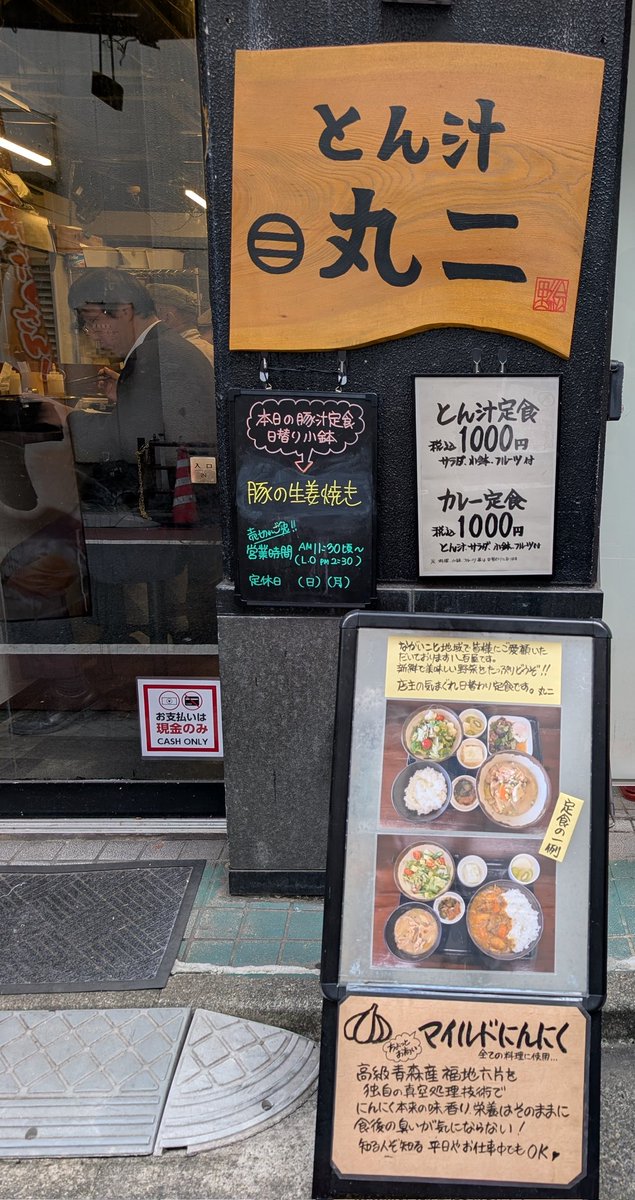 とん汁
丸二
本日の豚汁定食
日替り小鉢
豚の生姜焼き
売切れご免!!
営業時間 AM11:30頃～
(L.O PM2:30)
定休日 (日)(月)
とん汁定食
税込1000円
サラダ、小鉢、フルーツ付
カレー定食
税込1000円
とん汁、サラダ、小鉢、フルーツ付
入口
お支払いは
現金のみ
CASH ONLY
ながいこと地域で皆様にご愛顧いた
だいております八百屋です。
新鮮で美味しい野菜をたっぷりどうぞ!!
店主の気まぐれ日替わり定食です。丸二
定食の一例
マイルドにんにく
全ての料理に使用…
高級青森産 福地六片を
独自の真空処理技術で
にんにく本来の味、香り、栄養はそのままに
食後の臭いが気にならない!
知る人ぞ知る 平日やお仕事中でもOK♥